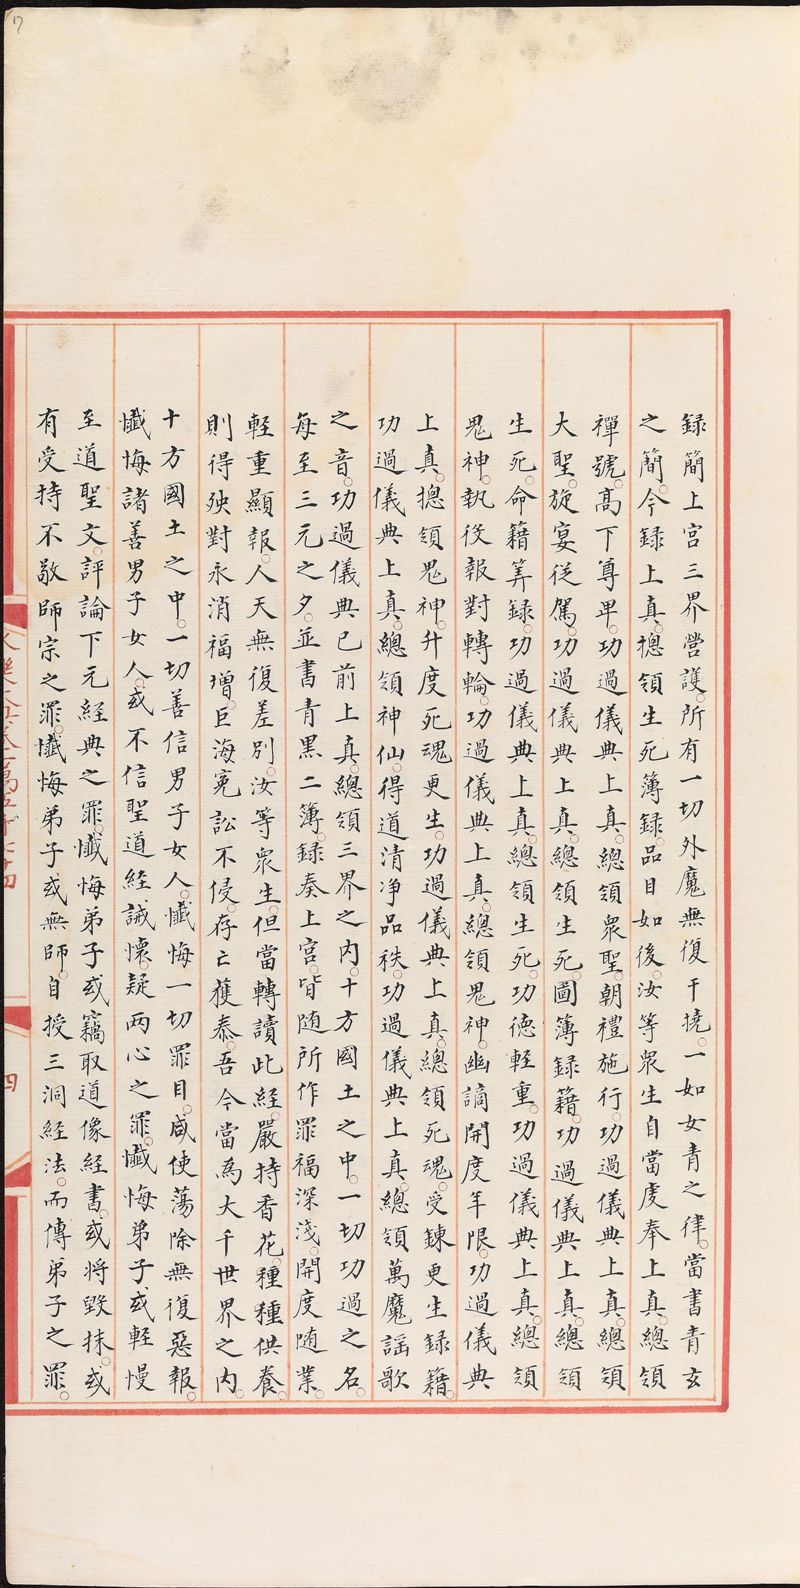 録簡上宫三界營護。所有一切外魔無復干撓。一如女青之律。當書青玄
之簡。今録上真。揔領生死簿録。品目如後。汝等衆生自當虔奉上真。總領
禪號。髙下尊卑。功過儀典上真。總領衆聖。朝禮施行。功過儀典上真。總領
大聖。旋宴従駕。功過儀典上真。總領生死。圖簿録籍。功過儀典上真。總領
生死。命籍筭録。功過儀典上真。總領生死。功徳輕重。功過儀典上真。總領
鬼神。執役報對轉輪。功過儀典上真。總領鬼神。幽謫開度年限。功過儀典
上真。揔領鬼神。升度死魂更生。功過儀典上真。總領死魂。受錬更生録籍。
功過儀典上真。總領神仙。得道清净品秩。功過儀典上真。總領萬魔謡歌
之音。功過儀典已前上真。總領三界之内。十方國土之中。一切功過之名。
每至三元之夕。並書青黒二簿。録奏上宫。皆随所作罪福深淺。開度随業。
輕重顯報。人天無復差别。汝等衆生。但當轉讀此經。嚴持香花。種種供養。
則得殃對永消福增。巨海寃訟不侵。存亡獲泰。吾今當為大千世界之内。
十方國土之中。一切善信男子女人。懺悔一切罪目。咸使蕩除無復惡報。
懺悔諸善男子女人。或不信聖道經誡。懷疑两心之罪。懺悔弟子或輕慢
至道聖文。評論下元經典之罪。懺悔弟子或竊取道像經書。或将毀抹。或
有受持不敬師宗之罪。懺悔弟子或無師。自授三洞經法。而傳弟子之罪。
四
17